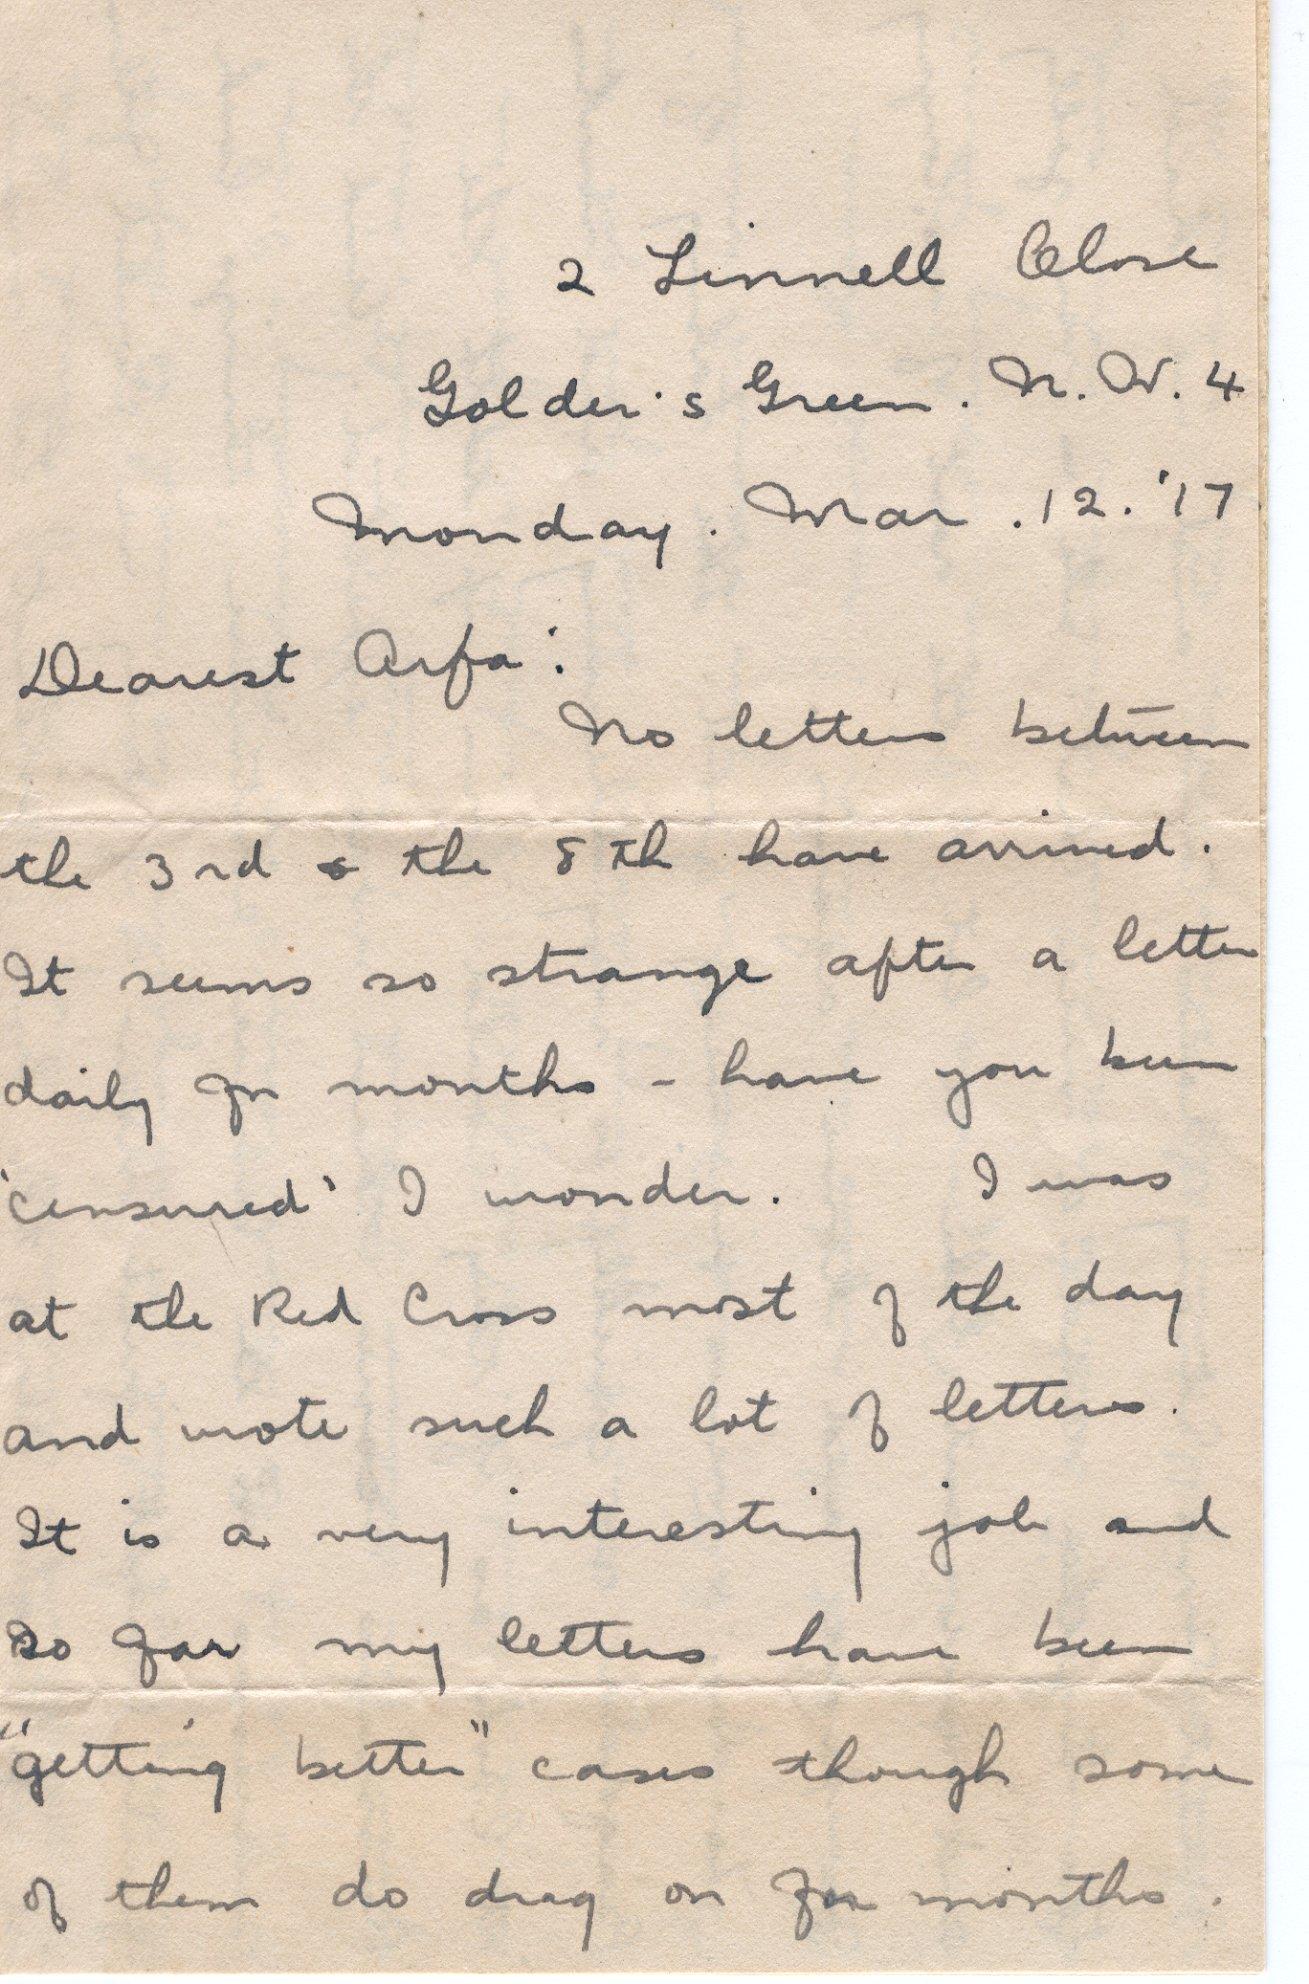 2 Linnell Close
Golder's Green. N.W.4
Monday. Mar. 12. '17
Dearest Arfa:
No letters between
the 3rd & the 8th have arrived.
It seems so strange after a letter
daily for months - have you been
'censured' I wonder. I was
at the Red Cross most of the day
and wrote such a lot of letters.
It is a very interesting job and
so far my letters have been
"getting better" cases though some
of them do drag on for months.